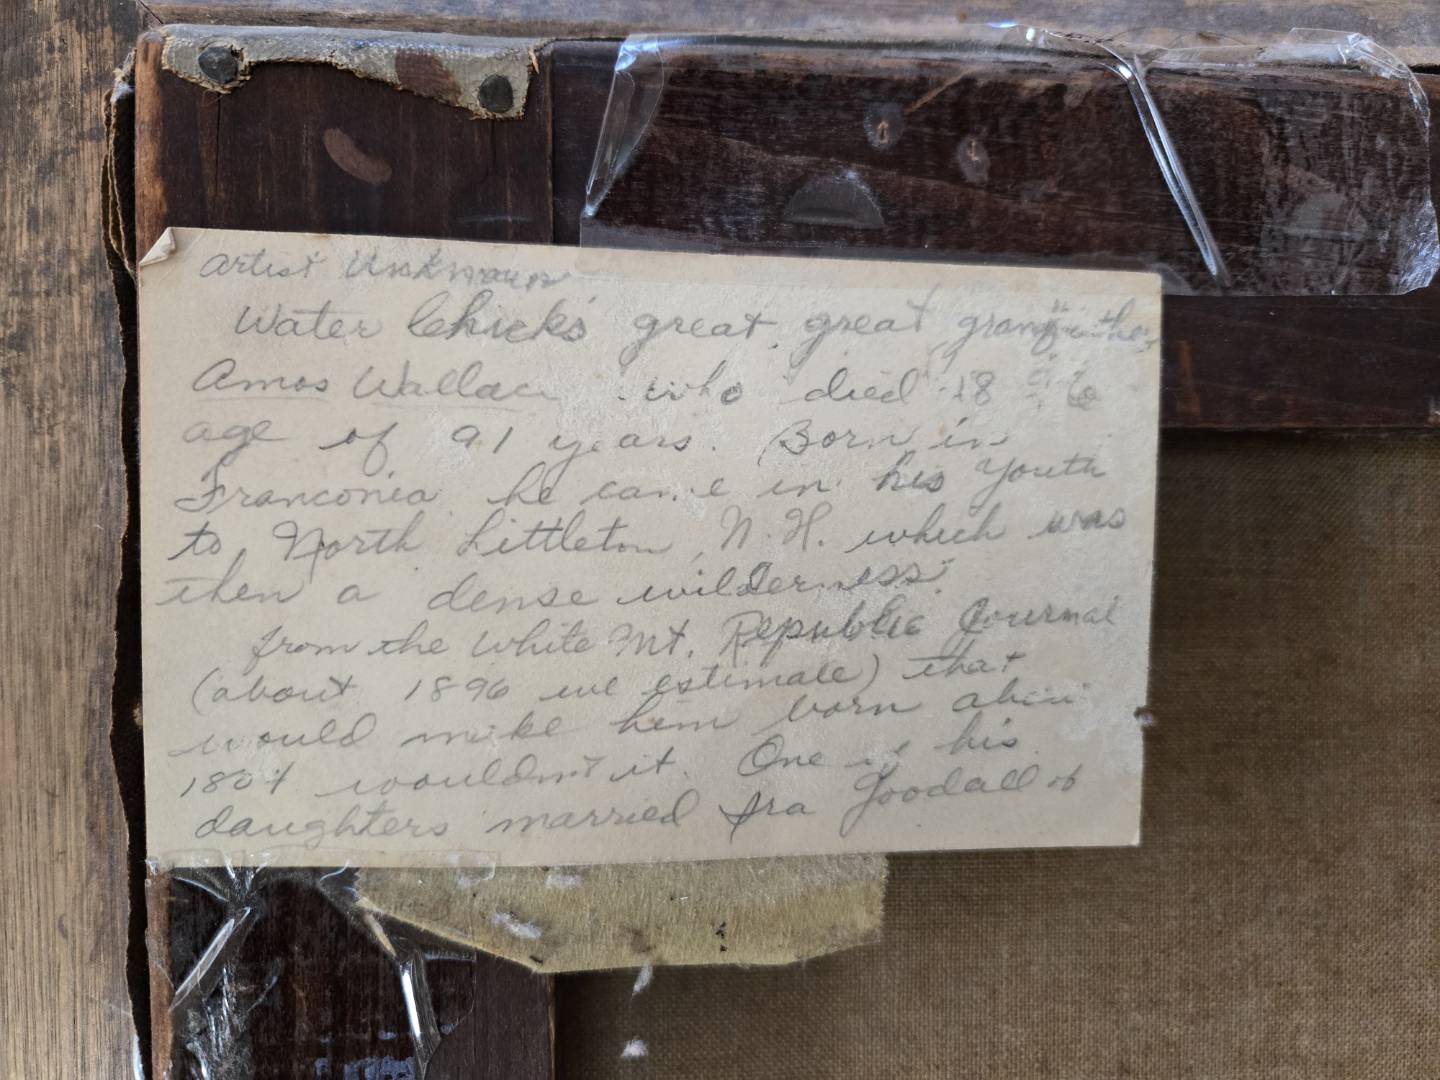 artist Unknown
Water Chick's great great grandfather
Amos Wallace who died 18 6
age of 91 years. Born in
Franconia he came in his youth
to North Littleton, N.H. which was
then a dense wilderness.
from the White Mt. Republic Journal
(about 1896 we estimate) that
would make him born about
180 wouldn't it. One of his
daughters married Ira Goodall of